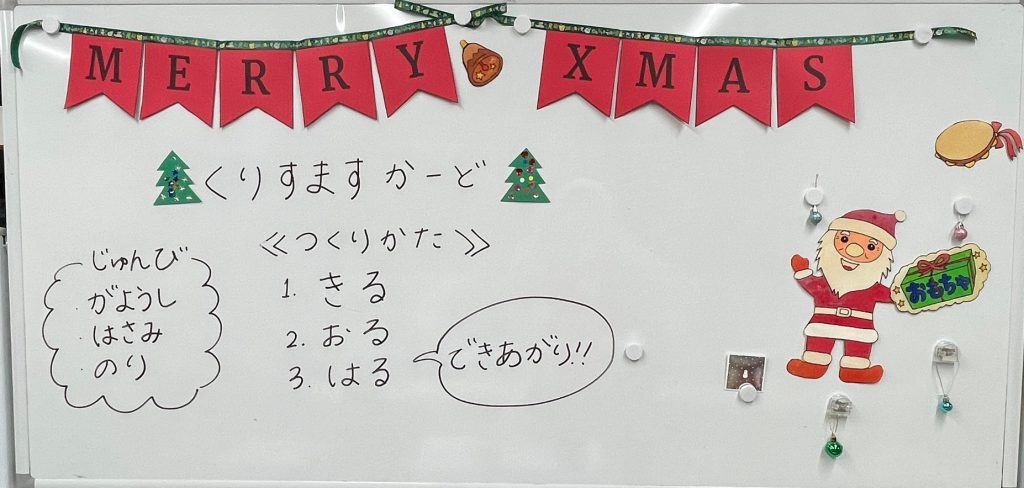 MERRY XMAS
くりすますかーど
≪つくりかた≫
1. きる
2. おる
3. はる
できあがり!!
じゅんび
・がようし
・はさみ
・のり
おもちゃ